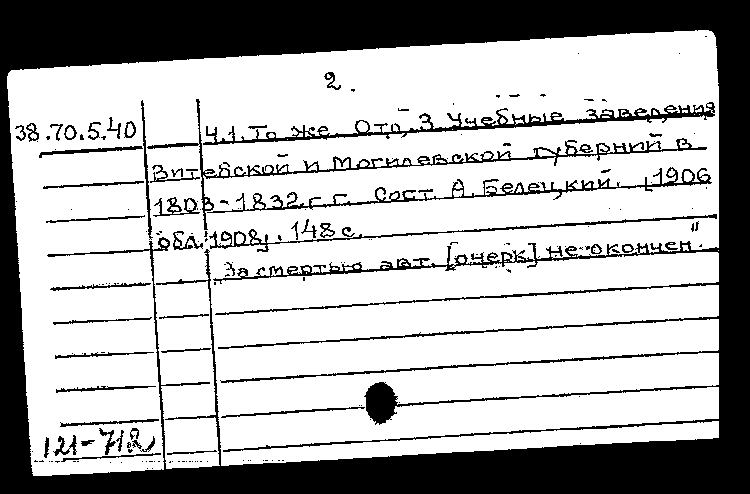 2.
38.70.5.40 Ч.1. То же. Отд. 3 Учебные заведения
Витебской и Могилевской губерний в
1803-1832 г.г. Сост. А. Белецкий. [1906
обл. 1908]. 148 с.
"За смертью авт. [очерк] не окончен".
121-712